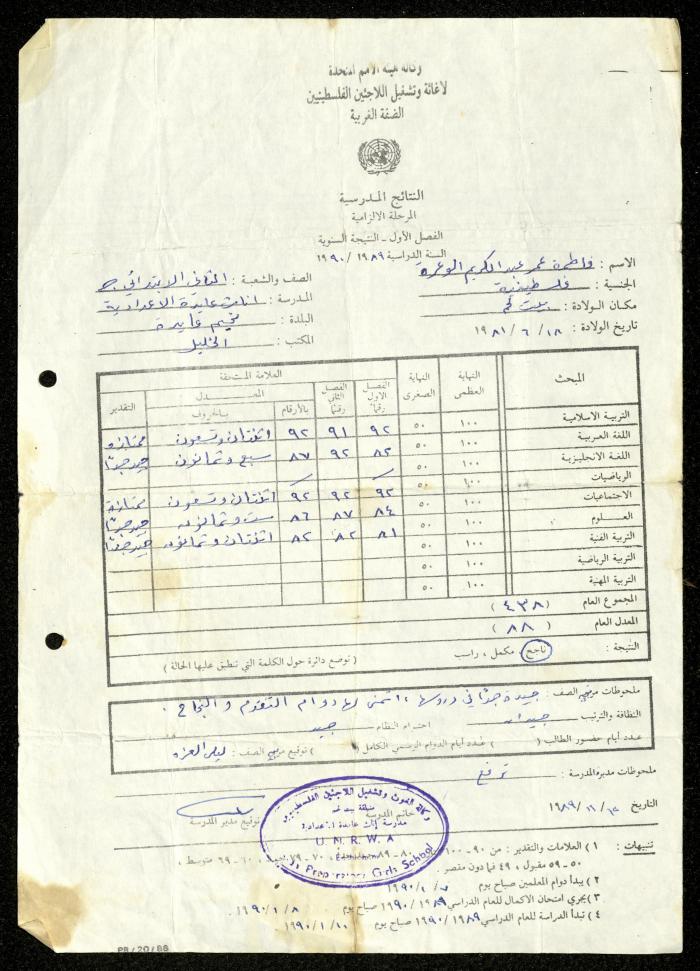 وكالة هيئة الأمم المتحدة
لاغاثة وتشغيل اللاجئين الفلسطينيين
الضفة الغربية
النتائج المدرسية
المرحلة الالزامية
الفصل الأول - النتيجة السنوية
السنة الدراسية ١٩٨٩ / ١٩٩٠
الاسم : فاطمة عمر عبد الكريم
الصف والشعبة : الثاني الابتدائي
الجنسية : فلسطينية
المدرسة : اناث عايدة الاعدادية
مكان الولادة : بيت لحم
البلدة : مخيم عايدة
تاريخ الولادة : ١٨ / ٦ / ١٩٨١
المكتب : الخليل
المبحث النهاية العظمى النهاية الصغرى العلامة المستحقة
الفصل الاول رقماً الفصل الثاني رقماً المعدل بالأرقام بالحروف التقدير
التربية الاسلامية ١٠٠ ٥٠ ٩٢ ٩١ ٩٢ اثنتان وتسعون ممتازة
اللغة العربية ١٠٠ ٥٠ ٨٢ ٩٢ ٨٧ سبع وثمانون جيد جداً
اللغة الانجليزية ١٠٠ ٥٠
الرياضيات ١٠٠ ٥٠ ٩٢ ٩٢ ٩٢ اثنتان وتسعون ممتازة
الاجتماعيات ١٠٠ ٥٠ ٨٤ ٨٧ ٨٦ ست وثمانون جيد جداً
العلوم ١٠٠ ٥٠ ٨١ ٨٢ ٨٢ اثنتان وثمانون جيد جداً
التربية الفنية ١٠٠ ٥٠
التربية الرياضية ١٠٠ ٥٠
التربية المهنية ١٠٠ ٥٠
المجموع العام ( ٤٣٨ )
المعدل العام ( ٨٨ )
النتيجة : ناجح ، مكمل ، راسب ( توضع دائرة حول الكلمة التي تنطبق عليها الحالة )
ملحوظات مربي الصف : جيدة جداً في دروسها ، اتمنى لها دوام التقدم و النجاح .
النظافة والترتيب احترام النظام جيد
عدد أيام حضور الطالب ( ) عدد أيام الدوام الرسمي الكامل ( ) توقيع مربي الصف :
ملحوظات مديرة المدرسة : ترفع
التاريخ / ١٩٨٩ خاتم المدرسة توقيع مدير المدرسة
وكالة الغوث وتشغيل اللاجئين الفلسطينيين
منطقة بيت لحم
مدرسة إناث عايدة الاعدادية
U. N. R. W. A
Preparatory Girls School
تنبيهات : ١ ) العلامات والتقدير : من ٩٠ - ١٠٠ ٨٠ - ٨٩ ٧٠ - ٧٩ ٦٠ - ٦٩ متوسط ،
٥٠ - ٥٩ مقبول ، ٤٩ فما دون مقصر .
٢ ) يبدأ دوام المعلمين صباح يوم ١٩٩٠
٣ ) يجري امتحان الاكمال للعام الدراسي ١٩٨٩ / ١٩٩٠ صباح يوم ٨ / ١ / ١٩٩٠ .
٤ ) تبدأ الدراسة للعام الدراسي ١٩٨٩ / ١٩٩٠ صباح يوم ١٠ / ١ / ١٩٩٠ .
PB / 20 / 86